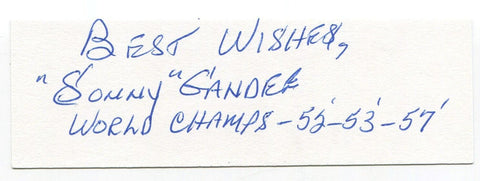 BEST WISHES,
"SONNY" GANDEE
WORLD CHAMPS - 52'-53'-57'